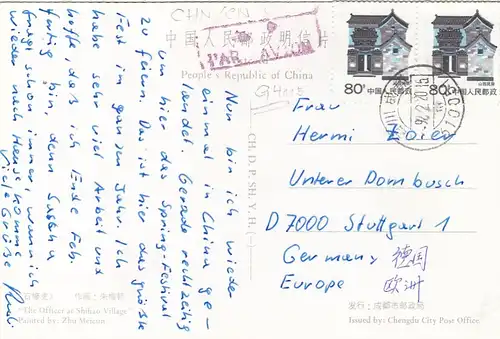 CHN
中国人民邮政明信片
PAR AVION
People's Republic of China
80分 中国人民邮政
80分 中国人民邮政
Nun bin ich wieder
einmal in China ge-
landet. Gerade rechtzeitig
um hier das Spring-Festival
zu feiern. Das ist hier das größte
Fest im ganzen Jahr. Ich
habe sehr viel Arbeit und
hoffe, daß ich Ende Feb.
fertig bin, denn Sascha
fragt schon immer, wann ich
wieder nach Hause komme
Viele Grüße
Frau
Hermi Zoier
Unterer Dornbusch
D 7000 Stuttgart 1
Germany 德国
Europe 欧洲
"The Officer at Shihao Village"
Painted by: Zhu Meicun
发行：成都市邮政局
Issued by: Chengdu City Post Office